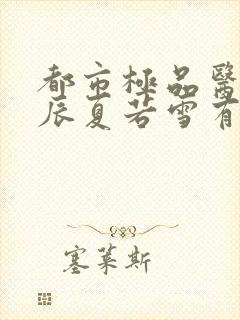 都市極品醫
辰夏若雪有
塞萊斯